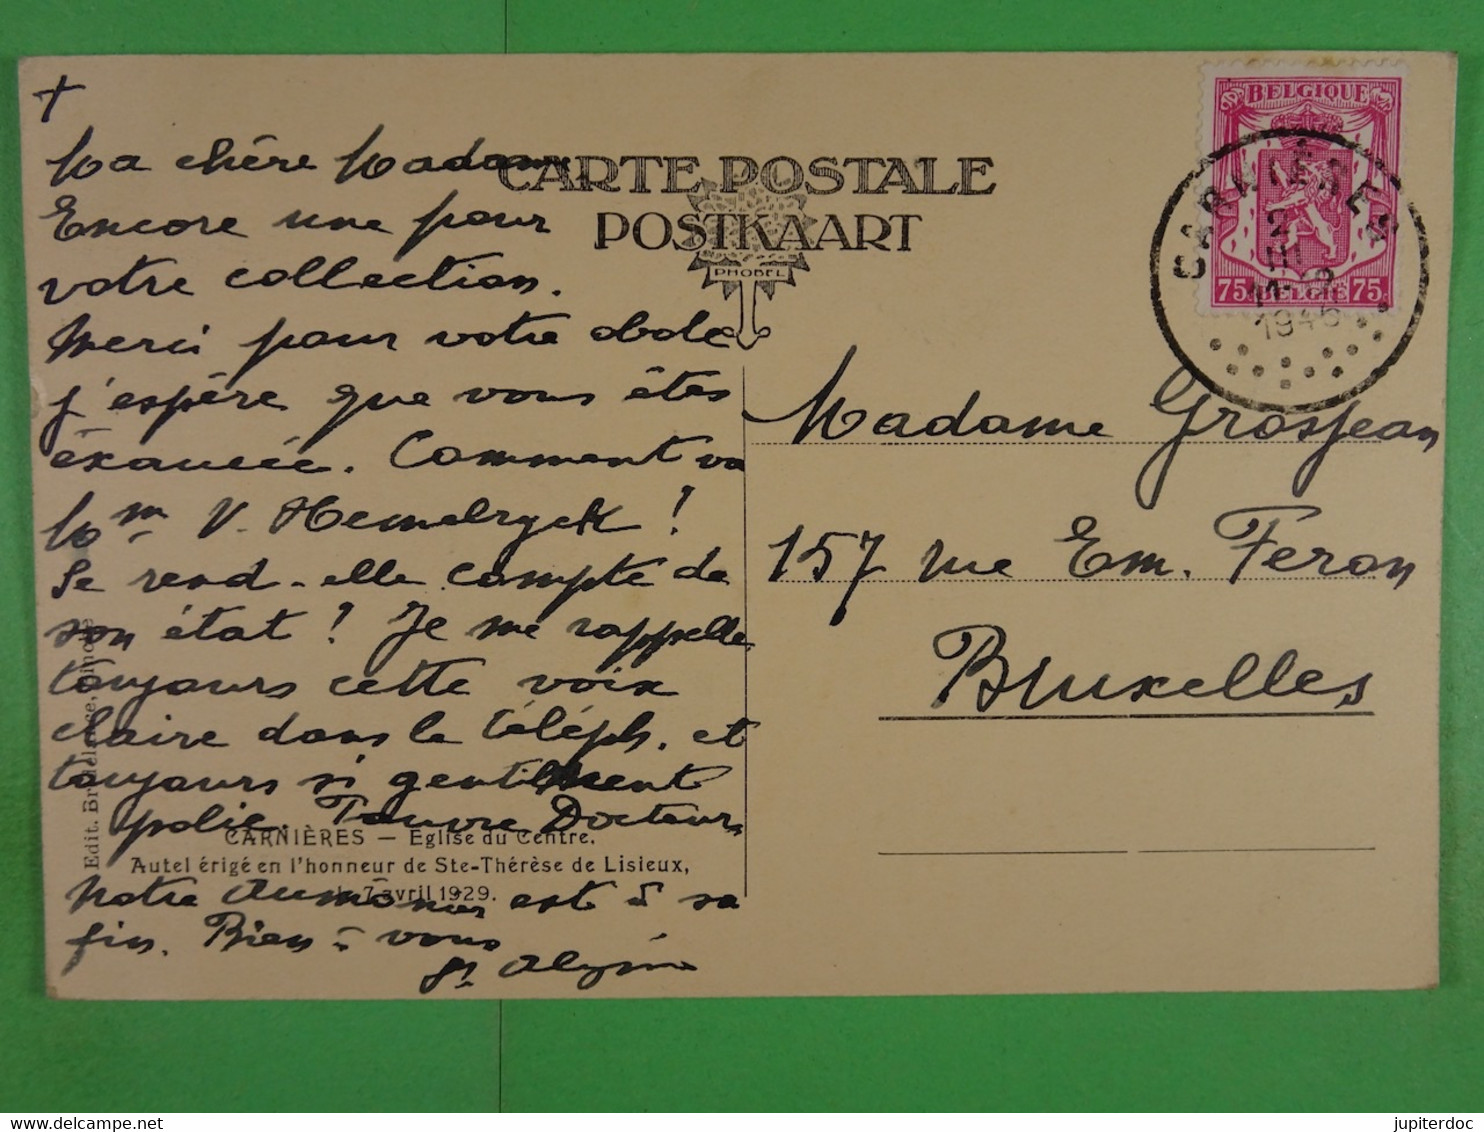 +
Ma chère Madame,
Encore une pour
votre collection.
Merci pour votre obole
j'espère que vous êtes
éxaucée. Comment va
Mme V. Hemelryck ?
Se rend-elle compte de
son état ? Je me rappelle
toujours cette voix
claire dans le téléph. et
toujours si gentiment
polie. Pauvre Docteur,
Notre Aumônier est à sa
fin. Bien à vous
CARTE POSTALE
POSTKAART
PHOBEL
CARNIÈRES — Eglise du Centre.
Autel érigé en l'honneur de Ste-Thérèse de Lisieux,
le 7 avril 1929.
Edit.
BELGIQUE
75 BELGIE 75
CARNIÈRES
2
III
1945
Madame Grosjean
157 rue Em. Feron
Bruxelles
jupiterdoc
https://www.delcampe.net